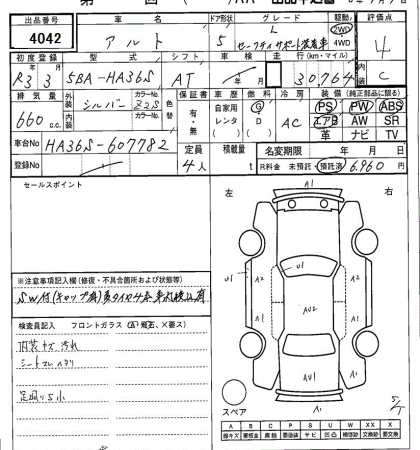 出品番号 4042
車名 アルト
ドア形状 5
グレード L
セーフティサポート装着車
駆動 2WD 4WD
評価点 4
初度登録 R3年3月
型式 5BA-HA36S
シフト AT
車検 年 月
走行(km・マイル) 30,764
内装 C
排気量 660 c.c.
外装 シルバー
カラーNo. Z2S
内装
カラーNo.
色替
保証書 有・無
車歴 自家用 レンタ
燃料 G D
冷房 AC
装備(純正部品に限る)
PS PW ABS
エアB AW SR
革 ナビ TV
車台No HA36S-607782
定員 4人
積載量 t
名変期限 年 月
登録No
R料金 未預託・預託済 6,960円
セールスポイント
左 右
※注意事項記入欄(修復・不具合箇所および状態等)
検査員記入 フロントガラス(A,飛石、×要ス)
内装キズ汚れ
シートコゲ ヘタリ
足廻りS小
A1
U1
U1
A2
A2
A2
AU2
A1
AU1
A1
スペア
A B C P S U W X XX
線キズ 要板金 腐蝕 要塗装 サビ 凹 補修跡 交換跡 要交換